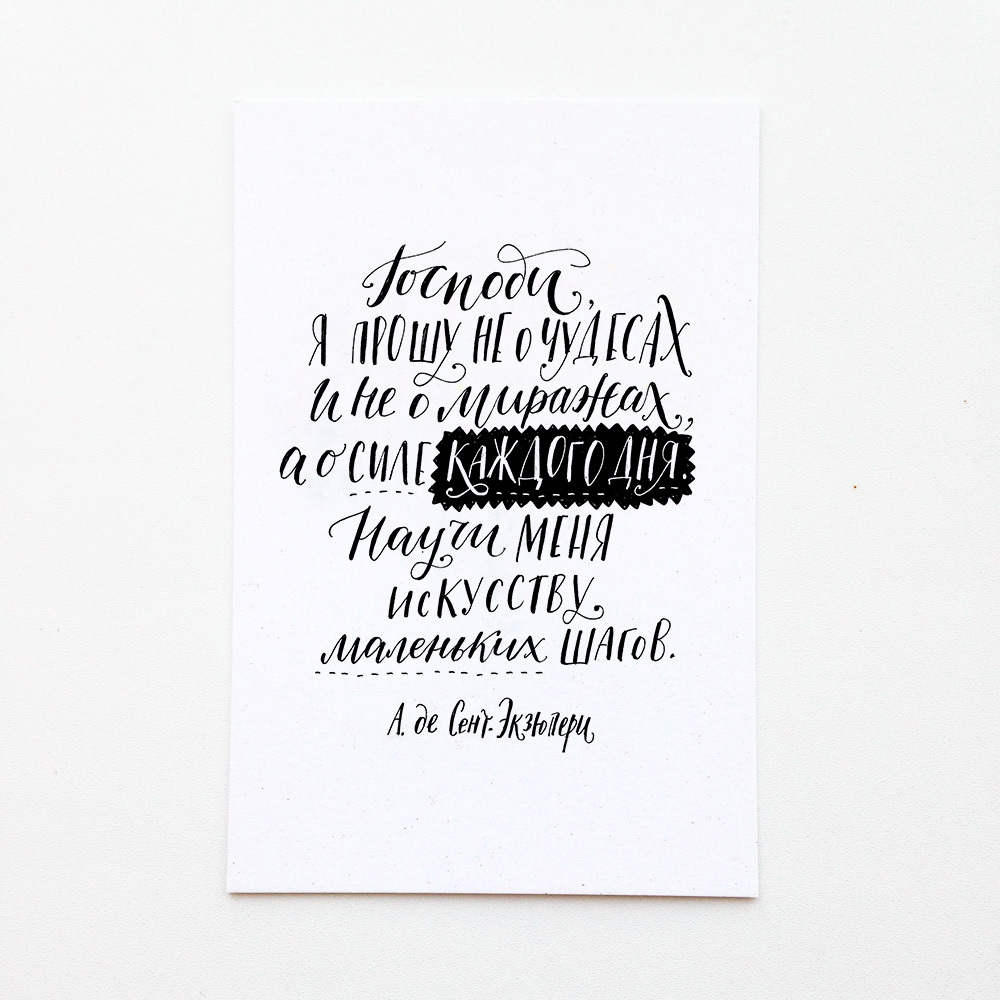 Господи,
Я ПРОШУ НЕ О ЧУДЕСАХ
И не о миражах,
а о СИЛЕ КАЖДОГО ДНЯ.
Научи МЕНЯ
ИСКУССТВУ
маленьких ШАГОВ.
А. де Сент-Экзюпери